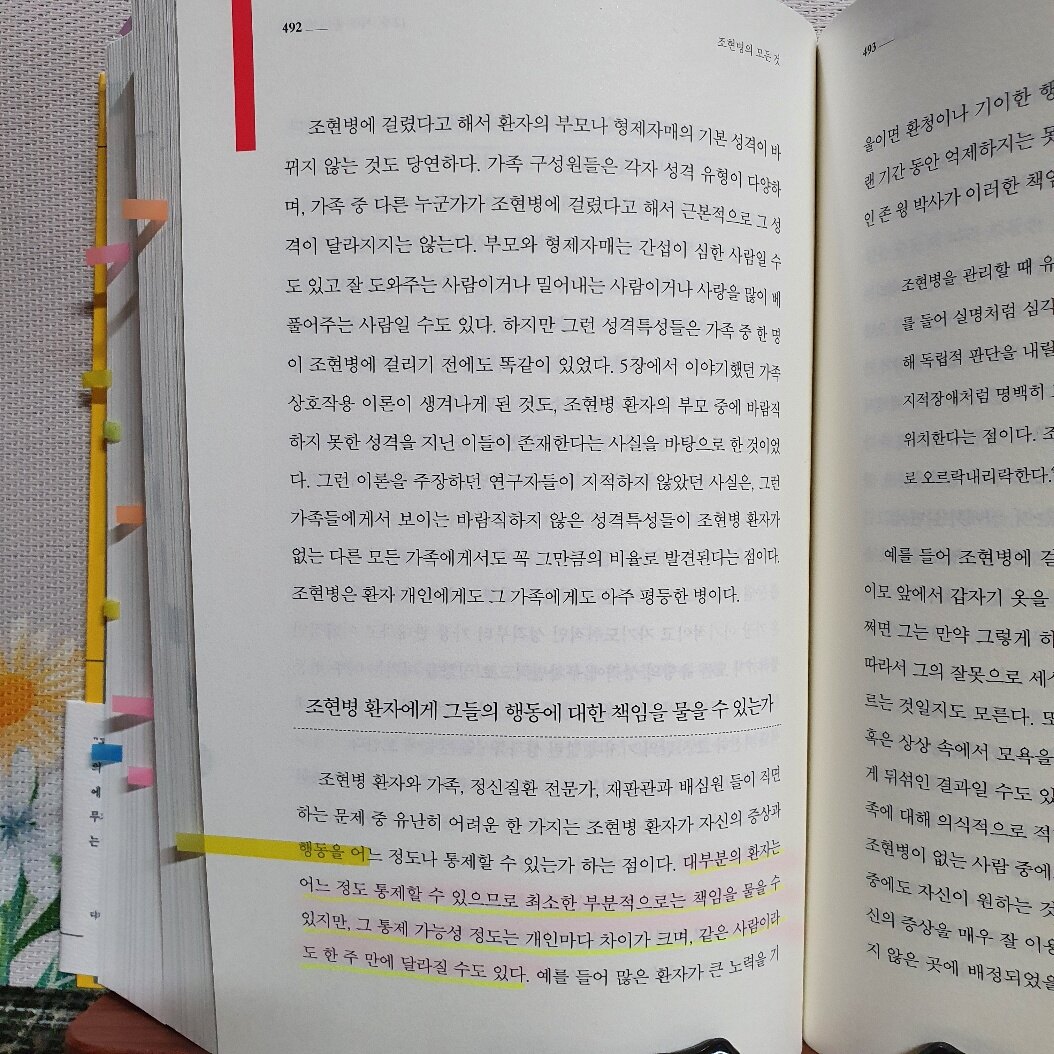 492
조현병의 모든 것
조현병에 걸렸다고 해서 환자의 부모나 형제자매의 기본 성격이 바
뀌지 않는 것도 당연하다. 가족 구성원들은 각자 성격 유형이 다양하
며, 가족 중 다른 누군가가 조현병에 걸렸다고 해서 근본적으로 그 성
격이 달라지지는 않는다. 부모와 형제자매는 간섭이 심한 사람일 수
도 있고 잘 도와주는 사람이거나 밀어내는 사람이거나 사랑을 많이 베
풀어주는 사람일 수도 있다. 하지만 그런 성격특성들은 가족 중 한 명
이 조현병에 걸리기 전에도 똑같이 있었다. 5장에서 이야기했던 가족
상호작용 이론이 생겨나게 된 것도, 조현병 환자의 부모 중에 바람직
하지 못한 성격을 지닌 이들이 존재한다는 사실을 바탕으로 한 것이었
다. 그런 이론을 주장하던 연구자들이 지적하지 않았던 사실은, 그런
가족들에게서 보이는 바람직하지 않은 성격특성들이 조현병 환자가
없는 다른 모든 가족에게서도 꼭 그만큼의 비율로 발견된다는 점이다.
조현병은 환자 개인에게도 그 가족에게도 아주 평등한 병이다.
조현병 환자에게 그들의 행동에 대한 책임을 물을 수 있는가
조현병 환자와 가족, 정신질환 전문가, 재판관과 배심원 들이 직면
하는 문제 중 유난히 어려운 한 가지는 조현병 환자가 자신의 증상과
행동을 어느 정도나 통제할 수 있는가 하는 점이다. 대부분의 환자는
어느 정도 통제할 수 있으므로 최소한 부분적으로는 책임을 물을 수
있지만, 그 통제 가능성 정도는 개인마다 차이가 크며, 같은 사람이라
도 한 주 만에 달라질 수도 있다. 예를 들어 많은 환자가 큰 노력을 기
493
울이면 환청이나 기이한 행
랜 기간 동안 억제하지는 못
인 존 윙 박사가 이러한 책임
조현병을 관리할 때 유
를 들어 실명처럼 심각
해 독립적 판단을 내릴
지적장애처럼 명백히
위치한다는 점이다. 조
로 오르락내리락한다.
예를 들어 조현병에 걸
이모 앞에서 갑자기 옷을
쩌면 그는 만약 그렇게 하
따라서 그의 잘못으로 세
르는 것일지도 모른다. 또
혹은 상상 속에서 모욕을
게 뒤섞인 결과일 수도 있
족에 대해 의식적으로 적
조현병이 없는 사람 중에
중에도 자신이 원하는 것
신의 증상을 매우 잘 이용
지 않은 곳에 배정되었을